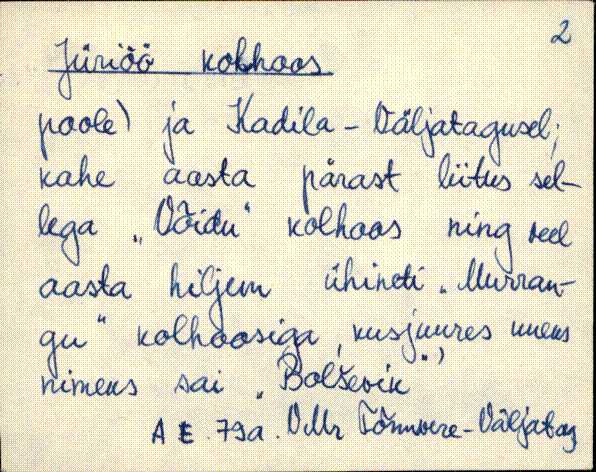 2
Jüriöö kolhoos
poole) ja Kadila-Väljatagusel;
kahe aasta pärast liitus sel-
lega „Võidu" kolhoos ning veel
aasta hiljem ühineti „Murran-
gu" kolhoosiga, kusjuures uueks
nimeks sai „Bolševik")
AE 79a. VMr Tõnuvere-Väljatag